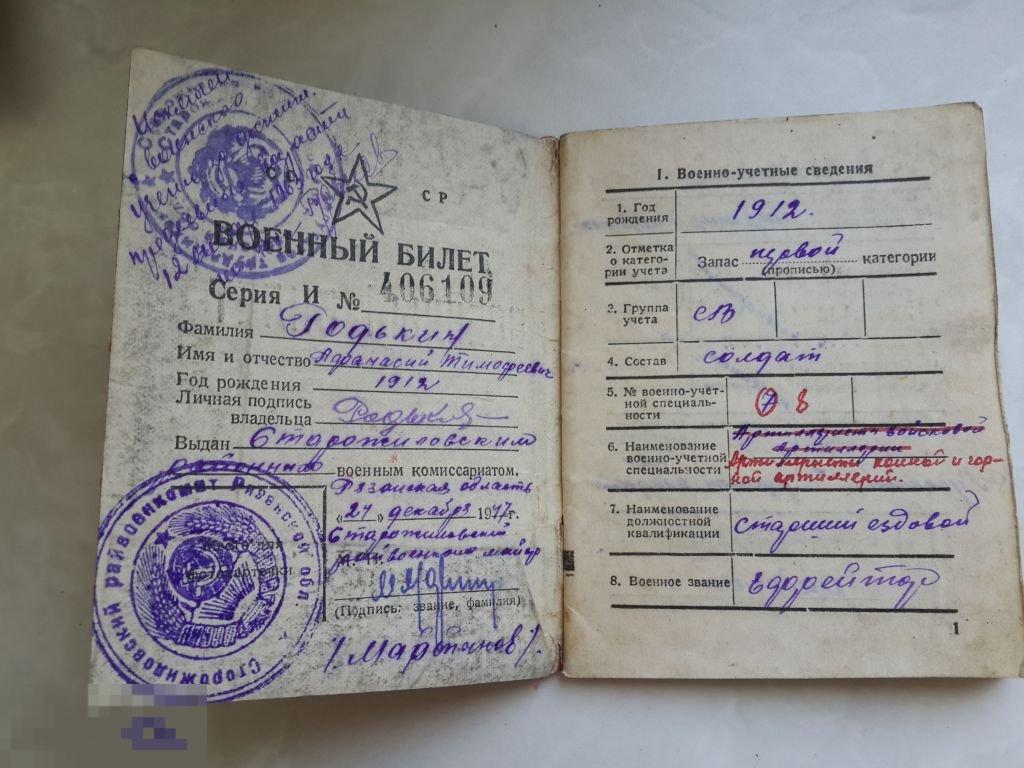 СС СР
ВОЕННЫЙ БИЛЕТ
Серия И № 406109
Фамилия Родькин
Имя и отчество Афанасий Тимофеевич
Год рождения 1912
Личная подпись
владельца Родькин
Выдан Старожиловским
районным военным комиссариатом.
Рязанская область
„24" декабря 1947г.
Старожиловский
райвоенком майор
М. П.
Место для
фотокарточки
(Подпись: звание, фамилия)
/Мартынов/.
райвоенкомат Рязанской обл
1. Военно-учетные сведения
1. Год
рождения
1912.
2. Отметка
о катего-
рии учета
Запас первой категории
(прописью)
3. Группа
учета
СВ
4. Состав
солдат
5. № военно-учет-
ной специаль-
ности
7 8
6. Наименование
военно-учетной
специальности
Артиллеристы войсковой
артиллерии
Артиллеристы конной и гор-
ной артиллерии.
7. Наименование
должностной
квалификации
Старший ездовой
8. Военное звание
Ефрейтор
1